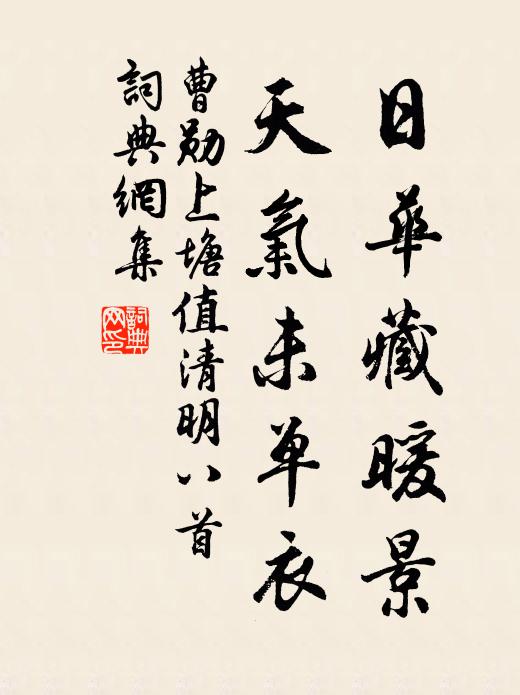 日華藏暖景
天氣未单衣
曹勋上塘值清明八首
詞典網集
詞典网印